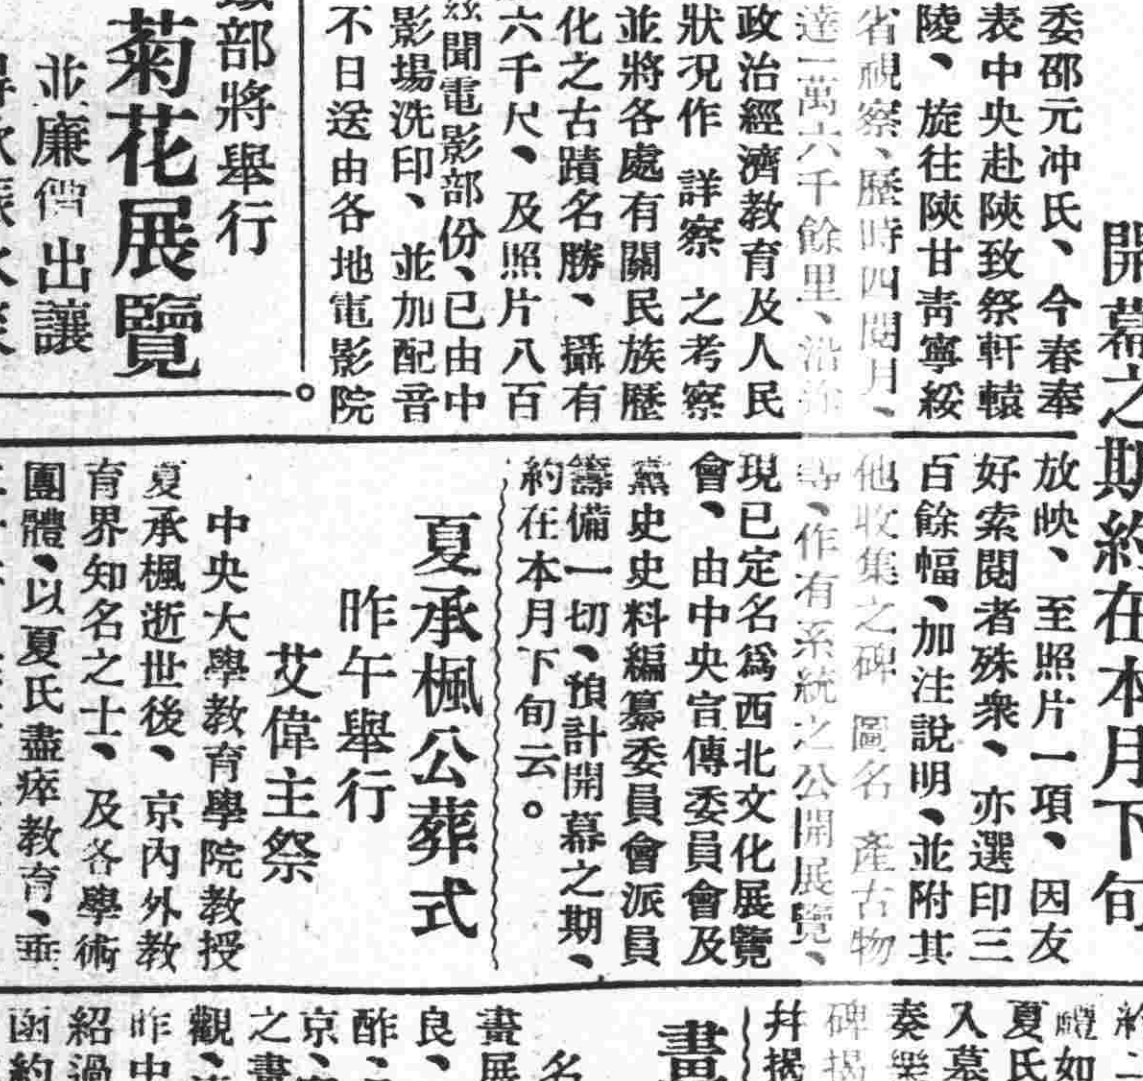 開幕之期約在本月下旬
委邵元冲氏、今春奉
表中央赴陝致祭軒轅
陵、旋往陝甘靑寧綏
省視察、歷時四閱月、
達一萬六千餘里、沿
政治經濟敎育及人民
狀况作 詳察 之考察
並將各處有關民族歷
化之古蹟名勝、攝有
六千尺、及照片八百
聞電影部份、已由中
影場洗印、並加配音
不日送由各地電影院
放映、至照片一項、因友
好索閱者殊衆、亦選印三
百餘幅、加注說明、並附其
他收集之碑 圖名 產古物
、作有系統之公開展覽、
現已定名爲西北文化展覽
會、由中央宣傳委員會及
黨史史料編纂委員會派員
籌備一切、預計開幕之期、
約在本月下旬云。
部將舉行
菊花展覽
並廉價出讓
夏承楓公葬式
昨午舉行
艾偉主祭
中央大學敎育學院敎授
夏承楓逝世後、京內外敎
育界知名之士、及各學術
團體、以夏氏盡瘁敎育、
如
夏氏
入墓
奏樂
碑揭
井揭
畫
名
畫展
良、
酢、
京、
之書
觀、
昨中
紹過
函約